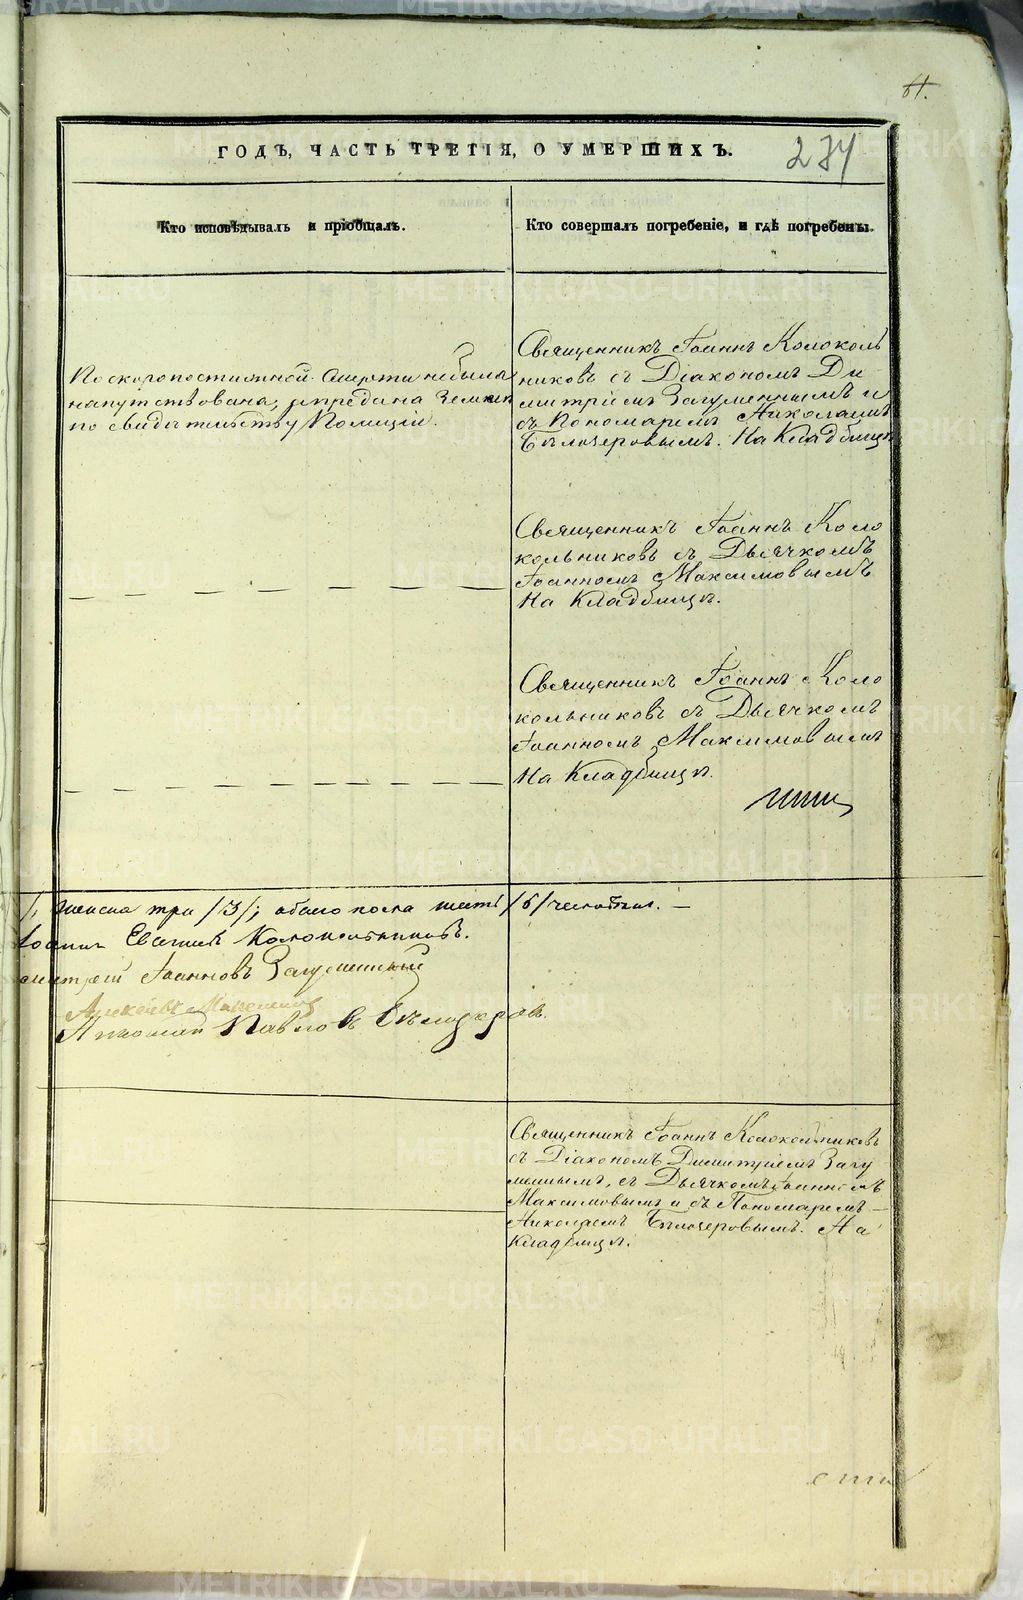 61.
ГОДЪ, ЧАСТЬ ТРЕТІЯ, О УМЕРШИХЪ.
234
Кто исповѣдывалъ и пріобщалъ.
Кто совершалъ погребеніе, и гдѣ погребены.
По скоропостижной смерти небыла
напутствована, предана земле
по свидѣтельству Полиціи.
Священникъ Іоаннъ Колоколь
никовъ съ Діакономъ Ди
митріемъ Загуменнымъ и
съ Пономаремъ Николаемъ
Бѣлочеровымъ. На Кладбищѣ
Священникъ Іоаннъ Коло
кольниковъ съ Дьячкомъ
Іоанномъ Максимовымъ
На Кладбищѣ.
Священникъ Іоаннъ Коло
кольниковъ съ Дьячкомъ
Іоанномъ Максимовымъ
На Кладбищѣ.
женска три /3/; обоего пола шесть /6/ человѣкъ.
Іоаннъ Евгеніевъ Колокольниковъ.
митрій Іоанновъ Загуменный
Николай Павловъ Бѣлочеровъ.
Священникъ Іоаннъ Колокольниковъ
съ Діакономъ Димитріемъ Загу
меннымъ, съ Дьячкомъ Іоанномъ
Максимовымъ и съ Пономаремъ
Николаемъ Бѣлочеровымъ. На
Кладбищѣ.
METRIKI.GASO-URAL.RU